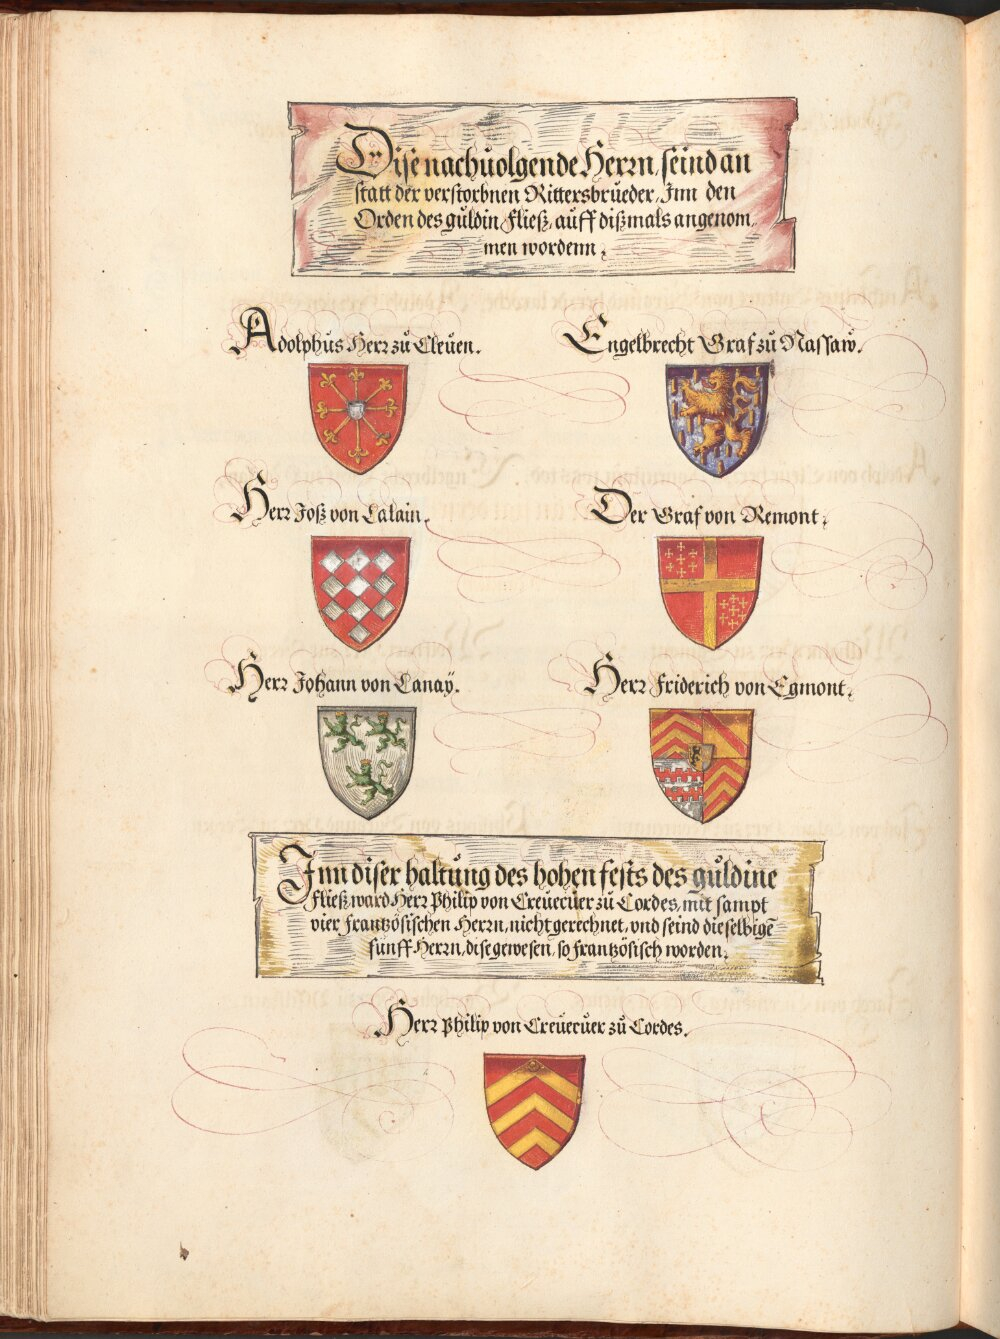 Dise nachuolgende Herrn, seind an
statt der verstorbnen Rittersbrueder, Inn den
Orden des guldin Fließ, auff dißmals angenom,
men wordenn.
Adolphus Herr zu Cleuen.
Engelbrecht Graf zu Nassaw.
Herr Joß von Lalain.
Der Graf von Remont.
Herr Johann von Lanaÿ.
Herr Friderich von Egmont.
Inn diser haltung des hohen fests des guldine
Fließ ward Herr Philip von Creuecuer zu Cordes, mit sampt
vier frantzösischen Herrn, nicht gerechnet, vnd seind dieselbigē
funff Herrn, dise gewesen, so frantzösisch worden.
Herr Philip von Creuecuer zu Cordes.